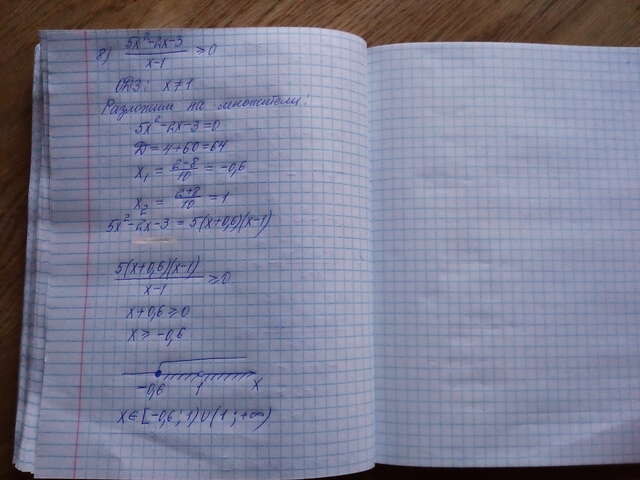 8) (5x²-2x-3)/(x-1) ≥ 0
ОДЗ: x≠1
Разложим на множители:
5x²-2x-3=0
D=4+60=64
x₁ = (2-8)/10 = -0,6
x₂ = (2+8)/10 = 1
5x²-2x-3 = 5(x+0,6)(x-1)
5(x+0,6)(x-1)/(x-1) ≥ 0
x+0,6 ≥ 0
x ≥ -0,6
-0,6 1 x
x∈[-0,6; 1)∪(1; +∞)